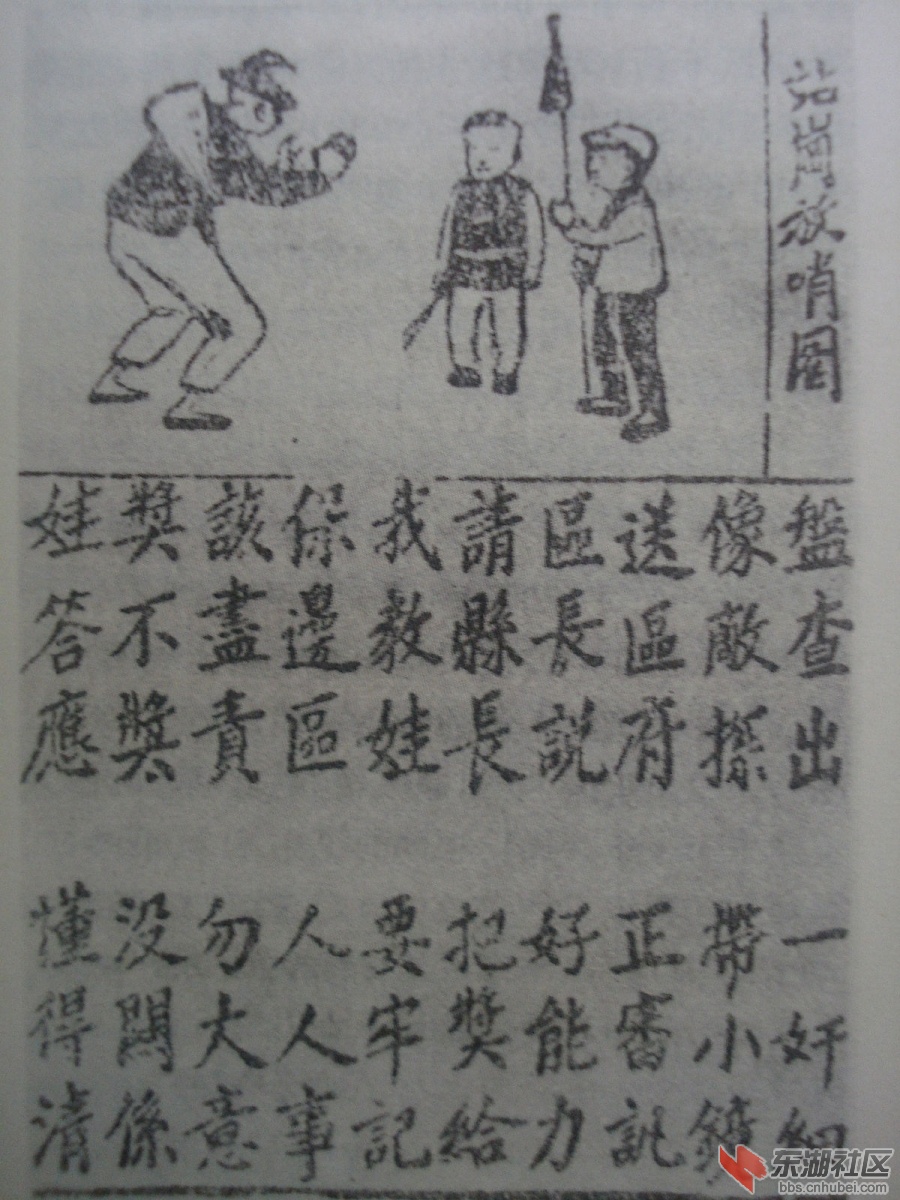 站崗放哨图
盤查出 一奸細
像敵探 帶小鏡
送區府 正審訊
區長說 好能力
請縣長 把獎給
我教娃 要牢記
保邊區 人人事
該盡責 勿大意
獎不獎 没關係
娃答應 懂得清
东湖社区
bbs.cnhubei.com